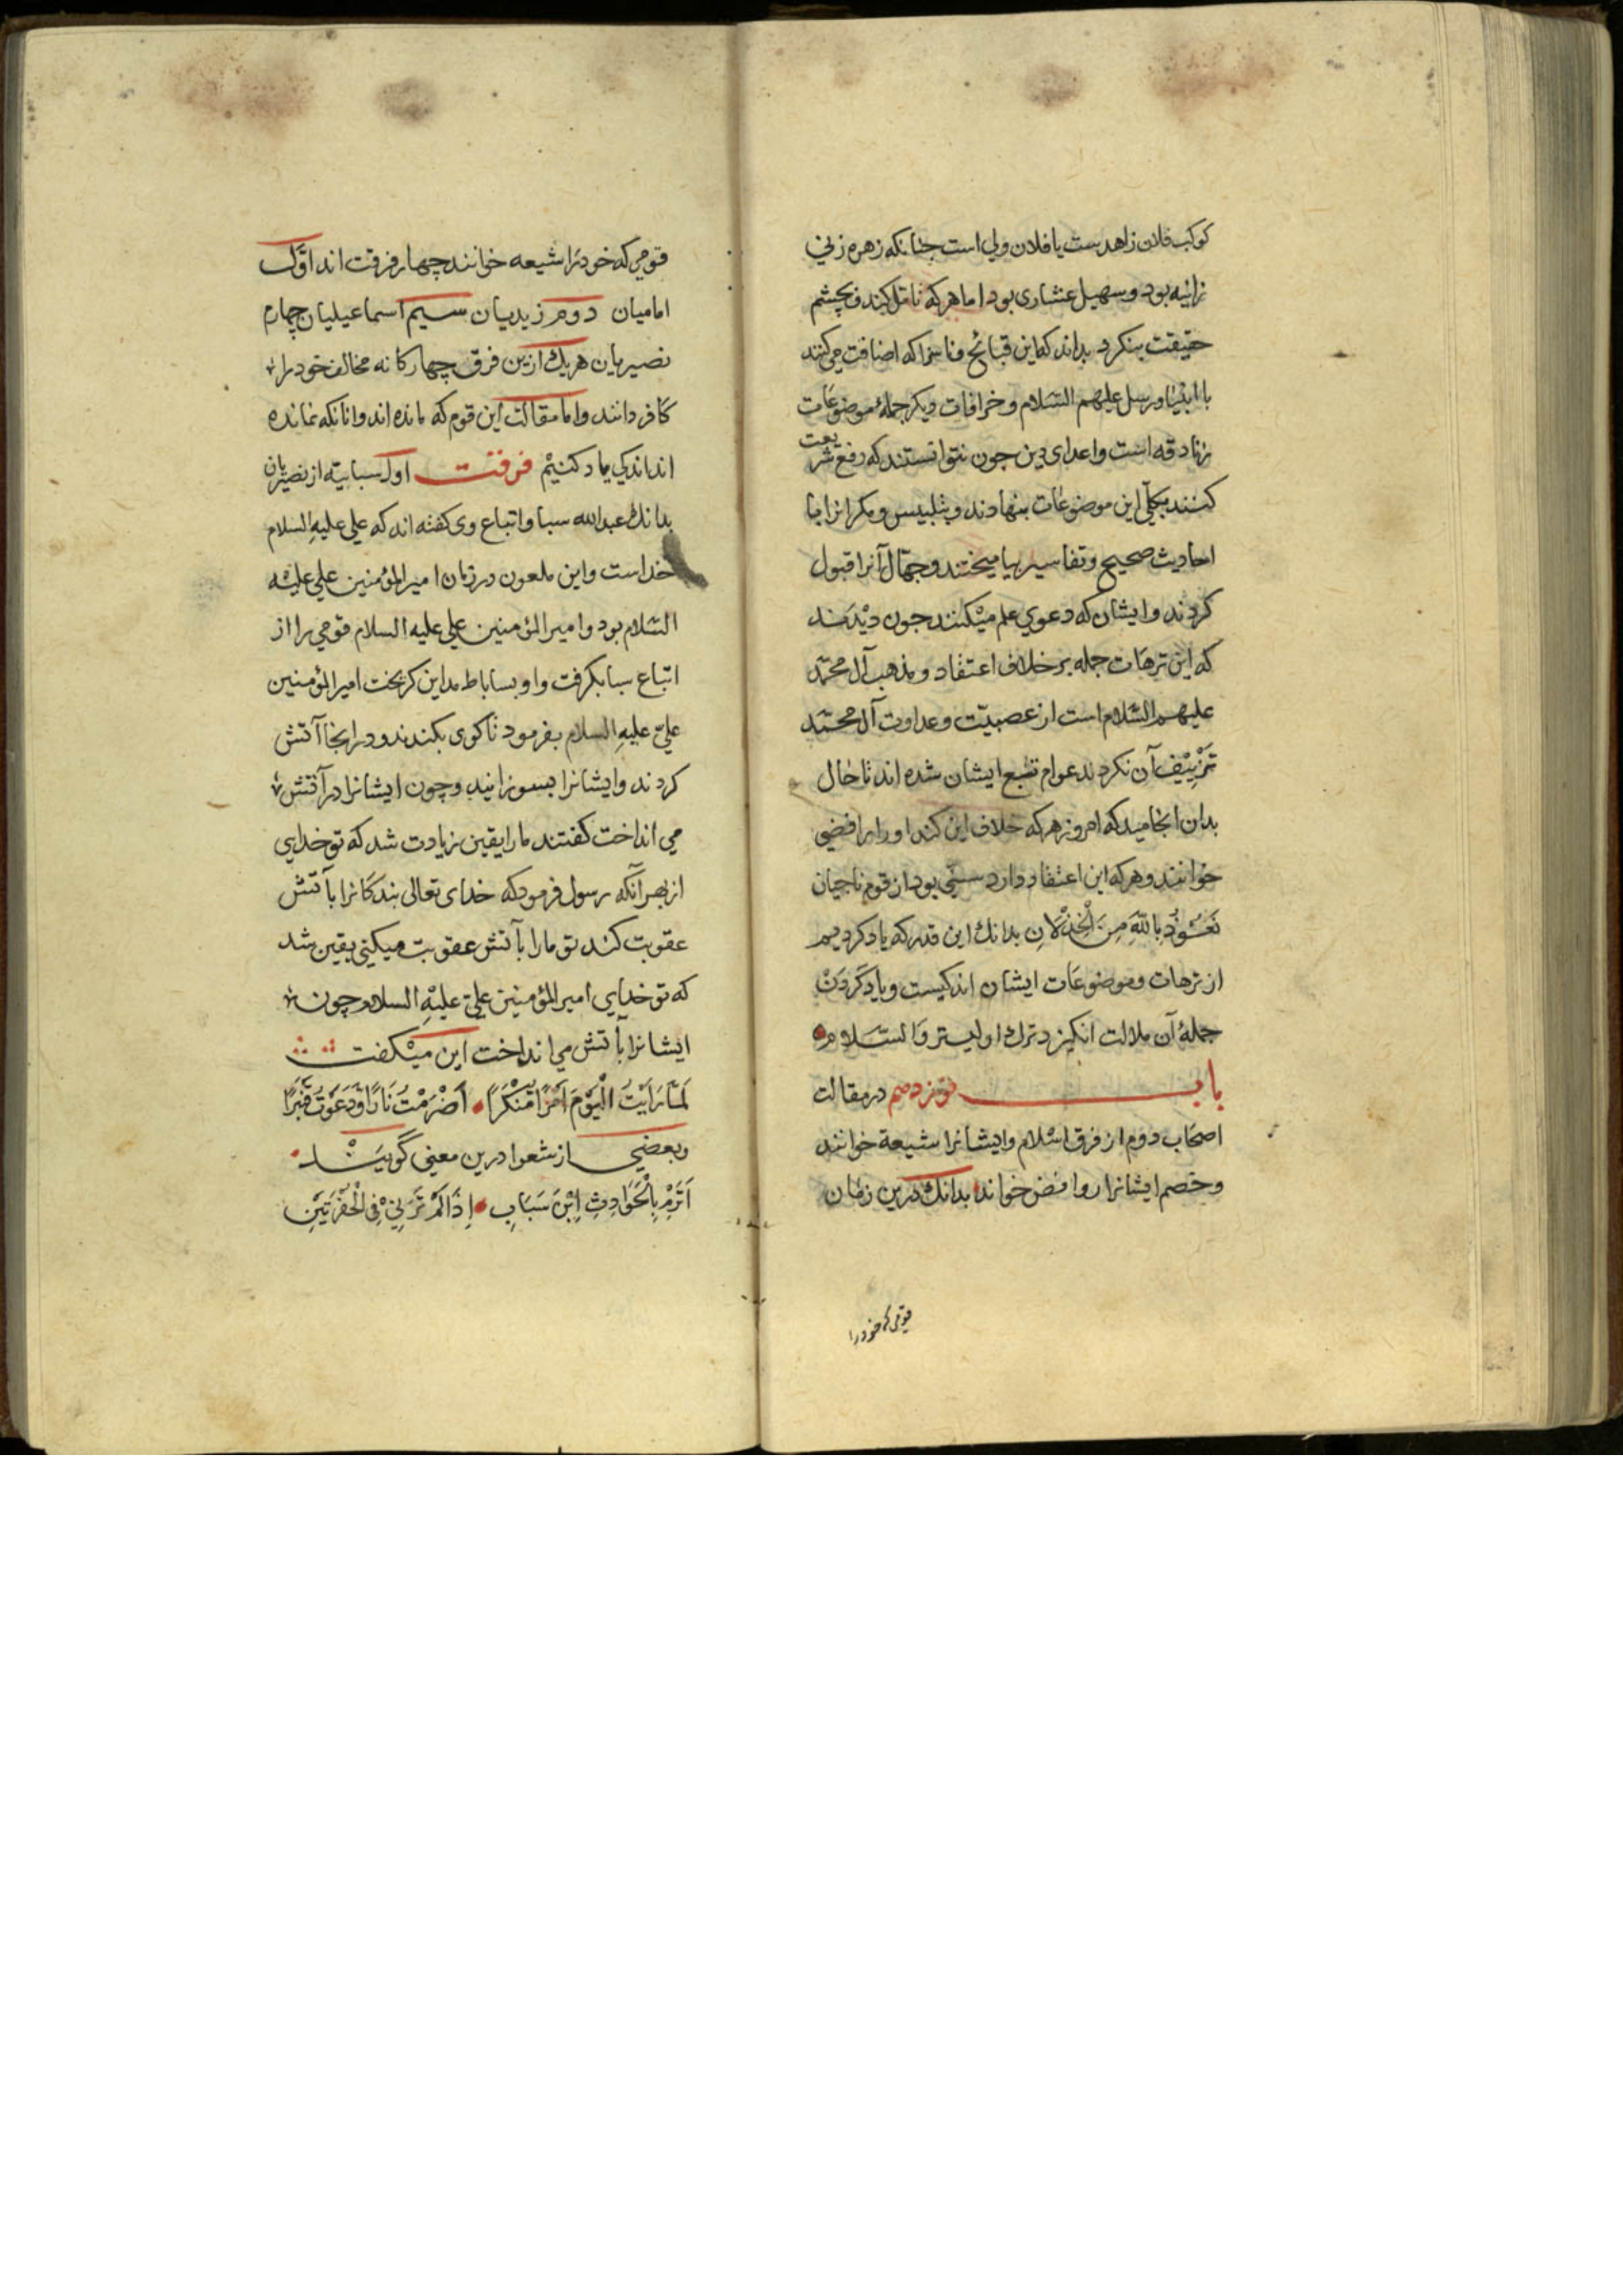 کوکب فلان زاهدست یا فلان ولی است جنانکه زهره زنی
زانیه بود و سهیل عشاری بود اما هر که تامل کند و بچشم
حقیقت بنکرد بداند که این قبائح و ناسزا که اضافت می کنند
با انبیا و رسل علیهم السّلام و خرافات دیکر جملهٔ موضوعات
زنادقه است و اعدای دین جون نتوانستند که رفع شریعت
کنند بکلّی این موضوعات بنهادند و بتلبیس و مکر انرا با
احادیث صحیح و تفاسیرها میختند و جهّال آنرا قبول
کردند و ایشان که دعوی علم میکنند جون دیدند
که این ترهات جمله بر خلاف اعتقاد و مذهب آل محمّد
علیهم السّلام است از عصبیّت و عداوت آل محمّد
تزییف آن نکردند عوام تبع ایشان شده اند تا حال
بدان انجامید که امروز هر که خلاف این کند او را رافضی
خوانند و هر که این اعتقاد دارد سنّی بود از قوم ناجیان
نَعُوذُ بِاللَّهِ مِنَ الْخِذْلَانِ بدانک این قدر که یاد کردیم
از ترهات و موضوعات ایشان اندکیست و یاد کردن
جملهٔ آن ملالت انکیزد ترک اولیتر وَالسَّلَام
باب نوزدهم در مقالت
اصحاب دوم از فرق اسلام و ایشانرا شیعة خوانند
و خصم ایشانرا روافض خواند بدانک درین زمان
قومی که خود را
قومی که خود را شیعه خوانند چهار فرقت اند اوّل
امامیان دوم زیدیان سیم اسماعیلیان چهارم
نصیریان هر یک ازین فرق چهارکانه مخالف خود را
کافر دانند و اما مقالت این قوم که مانده اند و انانکه نمانده
اند اندکی یاد کنیم فرقت اول سبابیّه از نصیریان
بدانک عبدالله سبا و اتباع وی کفته اند که علی علیه السلام
خداست و این ملعون در زمان امیر المؤمنین علی علیه
السّلام بود و امیر المؤمنین علی علیه السلام قومی را از
اتباع سبا بکرفت و او بساباط مداین کریخت امیر المؤمنین
علی علیه السلام بفرمود تا کوی بکندند و در انجا آتش
کردند و ایشانرا بسوزانید و چون ایشانرا در آتش
می انداخت کفتند ما را یقین زیادت شد که تو خدایی
از بهر آنکه رسول فرمود که خدای تعالی بندکانرا بآتش
عقوبت کند تو ما را بآتش عقوبت میکنی یقین شد
که تو خدایی امیر المؤمنین علی علیه السلام چون
ایشانرا بآتش می انداخت این میکفت
لَمَّا رَایْتُ الْیَوْمَ اَمْرًا مُنْکَرًا اَضْرَمْتُ نَارًا وَدَعَوْتُ قَنْبَرًا
و بعضی از شعرا درین معنی گویند
اَتَرْمِ بِالْحَوَادِثِ اِبْنَ سَبَابِ اِذَا لَمْ تَرْمِنِی فِی الْحُفْرَتَیْنِ